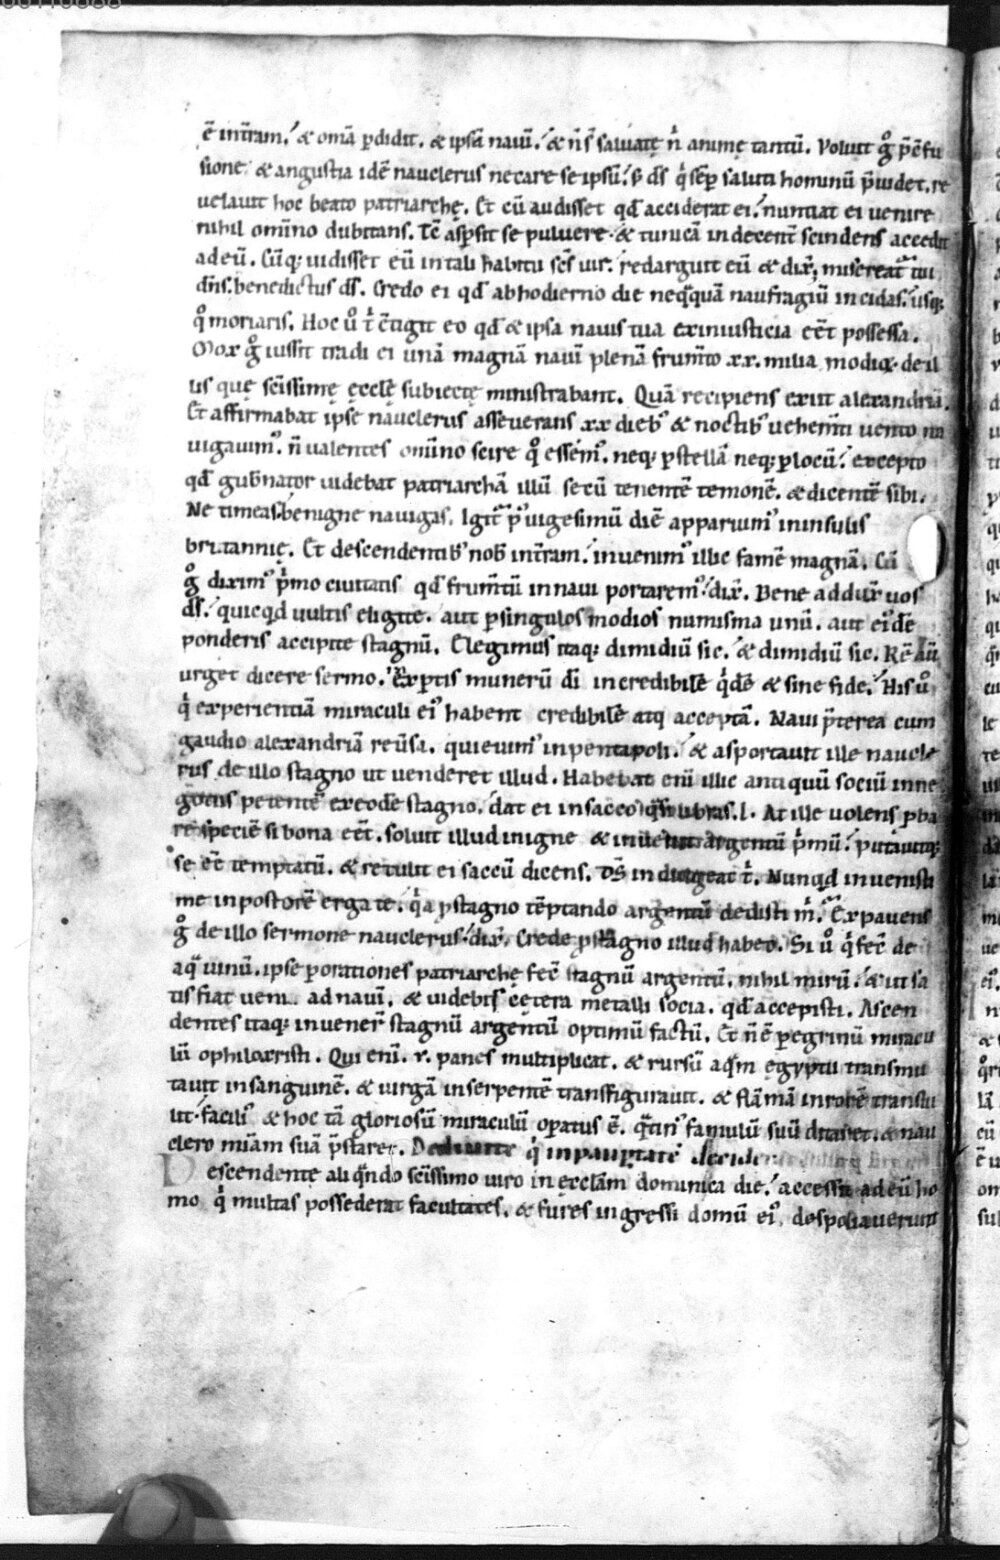 ē int̄ram. & om̄ia ꝑdidit. & ipsā nauī. & n̄ s̄ saluatę n̄ animę tantū. Voluit g̊ p̄ ꝯfu
sione & angustia idē nauclerus necare se ipsū. s; d̄s q̇ sēp saluti hominū p̄uidet. re
uelauit hoc beato patriarchę. Et cū audisset qd̄ acciderat ei. nuntiat ei uenire
nihil om̄ino dubitans. Tc̄ aspsit se puluere. & tunicā indecent̄ scindens accedit
ad eū. Cūq; uidisset eū in tali habitu sc̄s uir. redarguit eū & dix̄; misereat̄ tui
dn̄s. benedictus d̄s. Credo ei qd̄ ab hodierno die neq̄quā naufragiū incidas. usq;
q̊ moriaris. Hoc ů t̄ ꝯtigit eo qd̄ & ipsa nauis tua ex iniusticia eēt possessa.
Mox g̊ iussit tradi ei unā magnā nauī plenā frum̄to xx. milia modioꝝ. de il
lis quę sc̄issimę ęccłę subiectę ministrabant. Quā recipiens exiit alexandriā.
Et affirmabat ipse nauclerus asseuerans xx dieb; & noctib; uehem̄ti uento na
uigauim'. n̄ ualentes om̄ino scire q̊ essem'. neq; ꝑ stellā neq; ꝑ locū. excepto
qd̄ gub̄nator uidebat patriarchā illū secū tenentē temonē. & dicentē sibi.
Ne timeas. benigne nauigas. Igit̄ p' uigesimū diē apparuim' in insulis
britannię. Et descendentib; nob̄ in t̄ram. inuenim' illic famē magnā. Cū
g̊ dixim' p̄mo ciuitatis qd̄ frum̄tū in naui portarem'. dix̄. Bene addux̄ uos
d̄s. quicqd uultis eligite. aut ꝑ singulos modios numisma unū. aut ei'dē
ponderis accipite stagnū. Elegimus itaq; dimidiū sic. & dimidiū sic. Rē aū
urget dicere sermo. Exꝑtis munerū dī incredibilē q̇dē & sine fide. His ů
q̇ experientiā miraculi ei' habent credibilē atq acceptā. Naui p̄terea cum
gaudio alexandriā reūsa. quieuim' in pentapoli. & asportauit ille naucle
rus de illo stagno ut uenderet illud. Habebat enī illic antiquū sociū in ne
gociis petentē ex eodē stagno. dat ei in sacco q̄si libras .l. At ille uolens ꝓba
re speciē si bona eēt. soluit illud in igne & inuenit argentū p̄mū. putauitq;
se eē temptatū. & retulit ei saccū dicens. D̄s indulgeat t̄. Nunqd inuenisti
me inpostorē erga te. q̇a ꝓ stagno tēptando argentū dedisti m̄. Expauens
g̊ de illo sermone nauclerus. dix̄. Crede ꝓ stagno illud habeo. Si ů q̇ fec̄ de
aq̄ uinū. ipse ꝑ orationes patriarchę fec̄ stagnū argentū. nihil mirū. & ut sa
tis fiat ueni ad nauī. & uidebis cętera metalli socia. qd̄ accepisti. Ascen
dentes itaq; inuener̄ stagnū argentū optimū factū. Et n̄ ē peregrinū miracu
lū o philoxristi. Qui enī .v. panes multiplicat. & rursū aq̄m ęgypti transmu
tauit in sanguinē. & uirgā in serpentē transfigurauit. & flāmā in rorē transtu
lit. facili' & hoc tā gloriosū miraculū oꝑatus ē. q̄tin' famulū suū ditaret. & nau
clero mīam suā p̄staret. De diuite q̇ in pauꝑtatē deciderat
Descendente aliq̄ndo sc̄issimo uiro in ęccłam dominica die. accessit ad eū ho
mo q̇ multas possederat facultates. & fures ingressi domū ei'. despoliauerunt